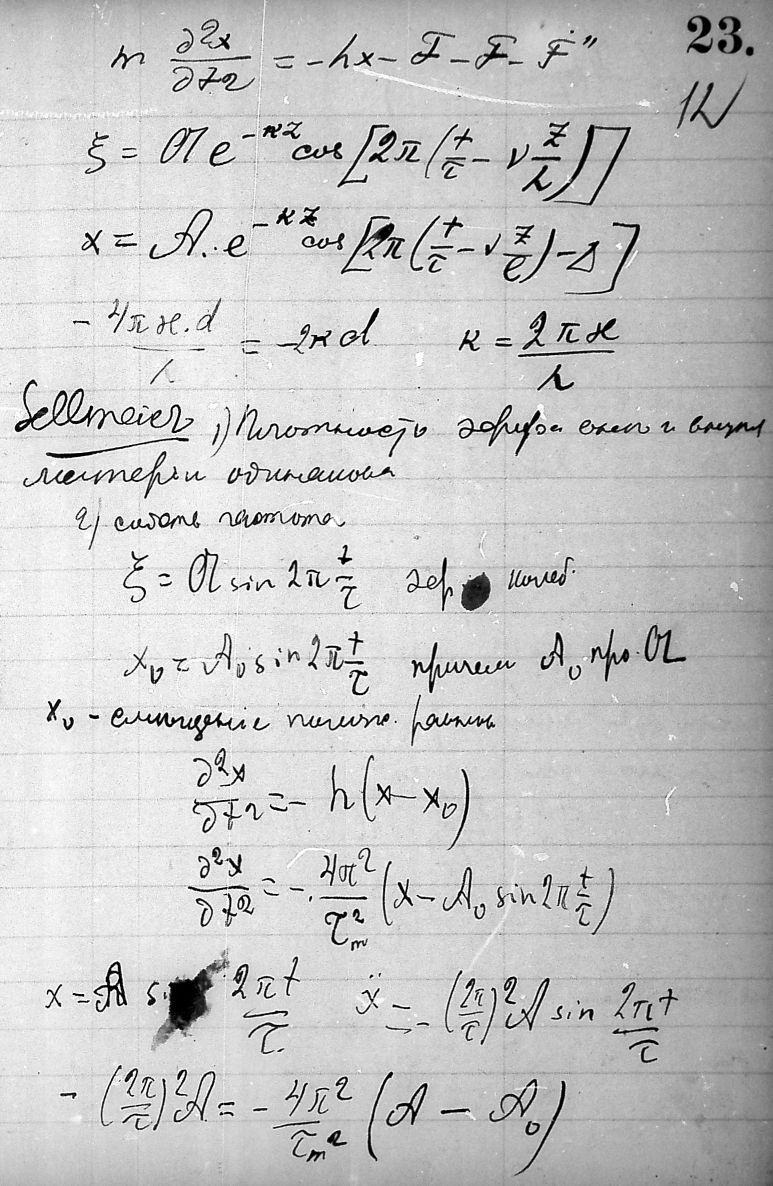 23.
12
m ∂²x/∂t² = -hx - F - F - F"
ξ = 𝔄 e^{-κz} cos[2π(t/τ - ν z/λ)]
x = A. e^{-κz} cos[2π(t/τ - ν z/e) - Δ]
- 4πϰ.d/λ = -2κd κ = 2πϰ/λ
Sellmeier 1) Плотность эфира вне и внутри
материи одинакова
2) собств частота
ξ = 𝔄 sin 2π t/τ эфр колеб.
x₀ = A₀ sin 2π t/τ причем A₀ про. 𝔄
x₀ - смещение полож. равнов
∂²x/∂t² = - h(x - x₀)
∂²x/∂t² = - 4π²/τₘ² (x - A₀ sin 2π t/τ)
x = A sin 2πt/τ ẍ = -(2π/τ)² A sin 2πt/τ
- (2π/τ)² A = - 4π²/τₘ² (A - A₀)